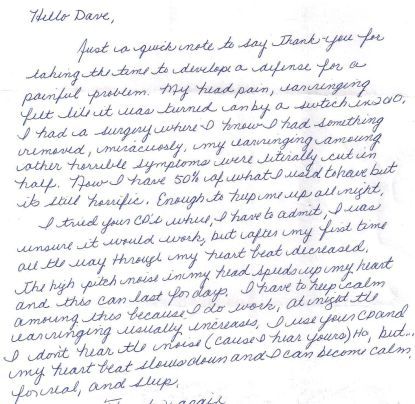 Hello Dave,
Just a quick note to say Thank-you for
taking the time to develope a defense for a
painful problem. My head pain, earringing
felt like it was turned on by a switch in 2010.
I had a surgery where I know I had something
removed, miracuosly, my earringing amoung
other horrible symptoms were literally cut in
half. Now I have 50% of what I used to have but
its still horrific. Enough to keep me up all night,
I tried your CD's while, I have to admit, I was
unsure it would work, but after my first time
all the way through my heart beat decreased.
The high pitch noise in my head speeds up my heart
and this can last for days. I have to keep calm
amoung this because I do work, at night the
earringing usually increases, I use your CD and
I don't hear the noise (cause I hear yours) Ha, but...
my heart beat slows down and I can become calm,
for real, and sleep.